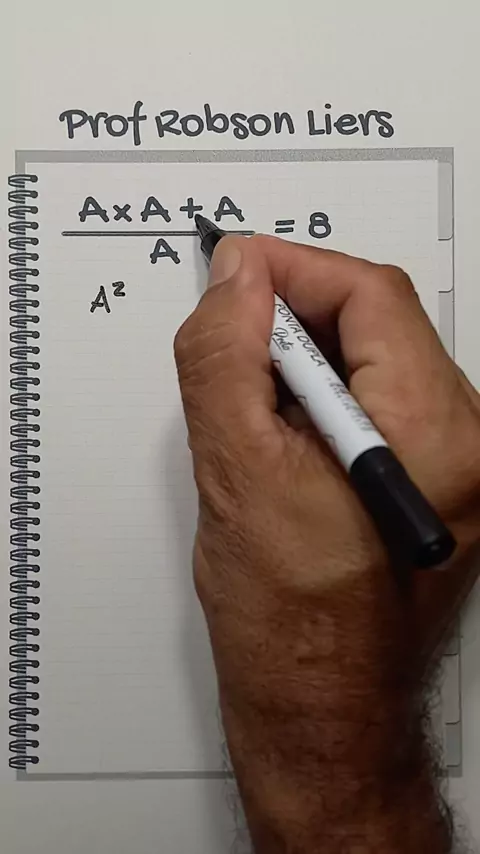 Prof Robson Liers
A x A + A
= 8
A
A²
PONTA DUPLA
Preto